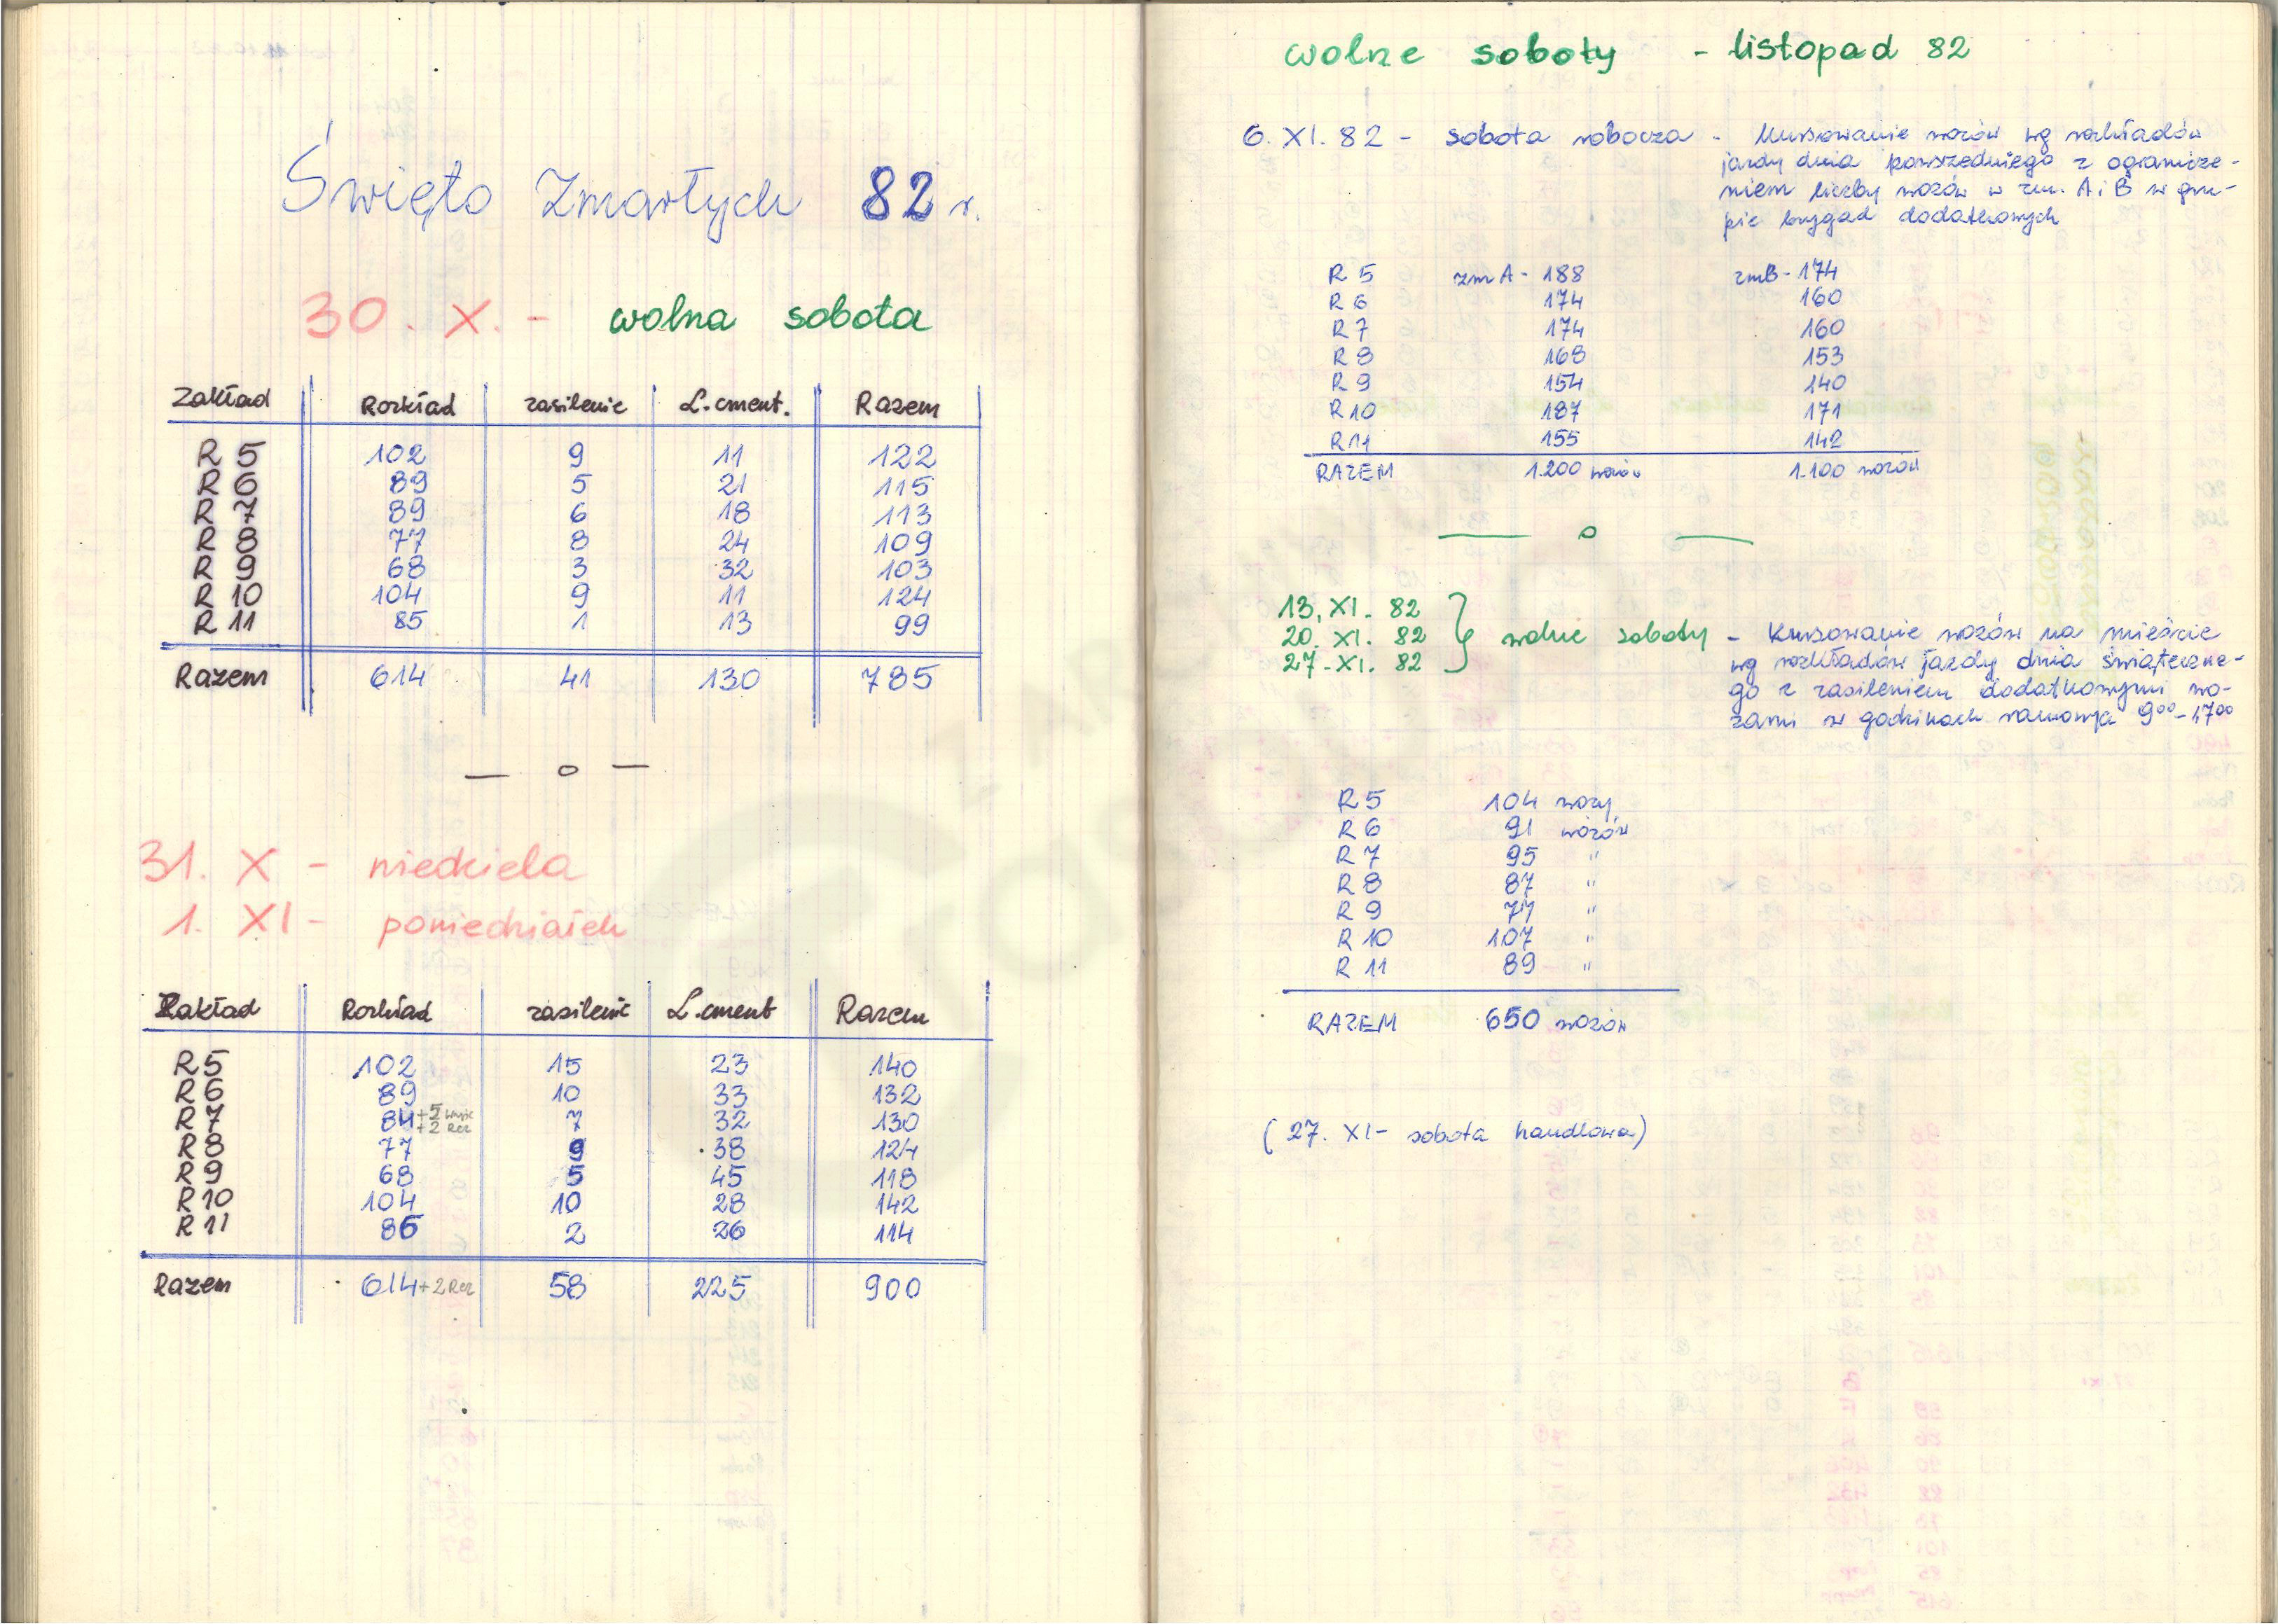 Święto Zmarłych 82 r.
30. X. - wolna sobota
Zakład Rozkład zasilenie L.cment. Razem
R 5 102 9 11 122
R 6 89 5 21 115
R 7 89 6 18 113
R 8 77 8 24 109
R 9 68 3 32 103
R 10 104 9 11 124
R 11 85 1 13 99
Razem 614 41 130 785
— o —
31. X - niedziela
1. XI - poniedziałek
Zakład Rozkład zasilenie L.cment Razem
R 5 102 15 23 140
R 6 89 10 33 132
R 7 84 +5 +2 Rez 7 32 130
R 8 77 9 38 124
R 9 68 5 45 118
R 10 104 10 28 142
R 11 86 2 26 114
Razem 614 +2 Rez 58 225 900
wolne soboty - listopad 82
6. XI. 82 - sobota robocza - Kursowanie wozów wg rozkładów
jazdy dnia powszedniego z ogranicze-
niem liczby wozów w zm. A i B w gru-
pie brygad dodatkowych
R 5 zm A - 188 zm B - 174
R 6 174 160
R 7 174 160
R 8 168 153
R 9 154 140
R 10 187 171
R 11 155 142
RAZEM 1.200 wozów 1.100 wozów
— o —
13. XI. 82
20. XI. 82 } wolne soboty - Kursowanie wozów na mieście
27. XI. 82
wg rozkładów jazdy dnia świąteczne-
go z zasileniem dodatkowymi wo-
zami w godzinach 9⁰⁰ - 17⁰⁰
R 5 104 wozy
R 6 91 wozów
R 7 95 "
R 8 87 "
R 9 77 "
R 10 107 "
R 11 89 "
RAZEM 650 wozów
(27. XI - sobota handlowa)